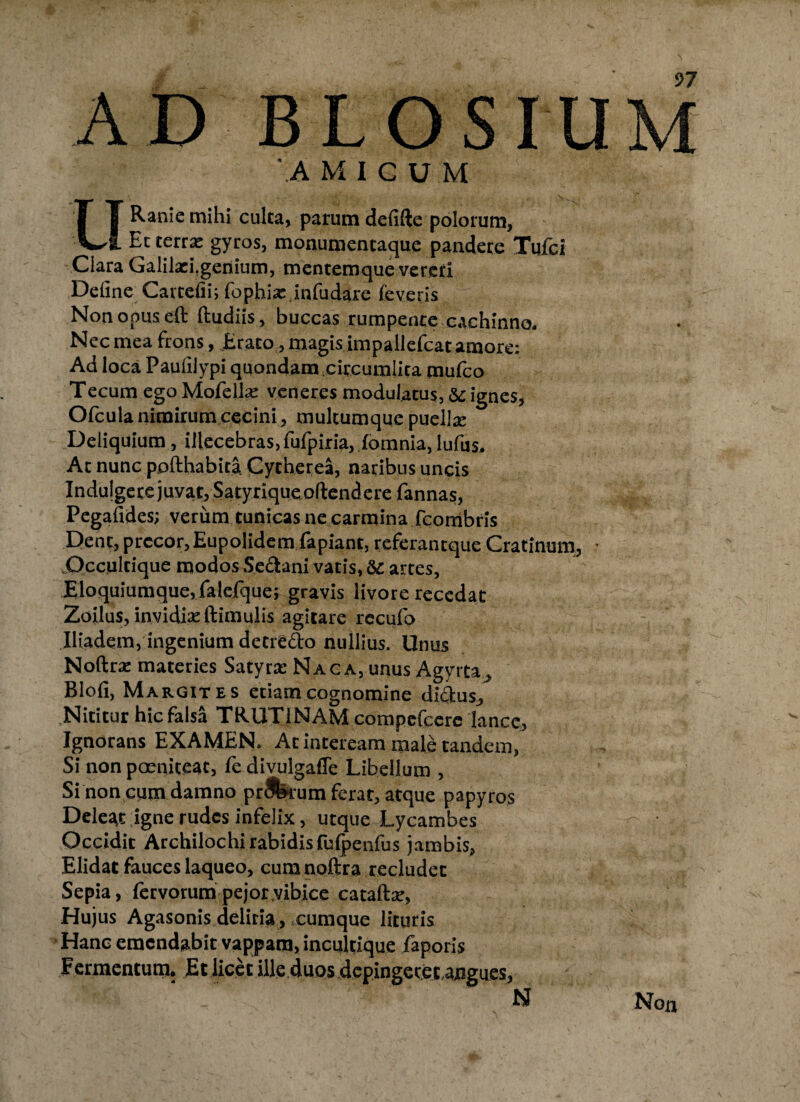 97
AD BLOSIUM
AMICUM
URanie mihi culta, parum deſiſte polorum,
Et terræ gyros, monumentaque pandere Tuſci
Clara Galilæi, genium, mentemque vereri
Deſine Carteſii; ſophiæ inſudare ſeveris
Non opus eſt ſtudiis, buccas rumpente cachinno.
Nec mea frons, Erato, magis impalleſcat amore:
Ad loca Pauſilypi quondam circumlita muſco
Tecum ego Moſellæ veneres modulatus, & ignes,
Oſcula nimirum cecini, multumque puellæ
Deliquium, illecebras, ſuſpiria, ſomnia, luſus.
At nunc poſthabitâ Cythereâ, naribus uncis
Indulgere juvat, Satyrique oſtendere ſannas,
Pegaſides; verùm tunicas ne carmina ſcombris
Dent, precor, Eupolidem ſapiant, referantque Cratinum,
Occultique modos Sectani vatis, & artes,
Eloquiumque, ſaleſque; gravis livore recedat
Zoilus, invidiæ ſtimulis agitare recuſo
Iliadem, ingenium detrecto nullius. Unus
Noſtræ materies Satyræ NACA, unus Agyrta,
Bloſi, MARGITES etiam cognomine dictus,
Nititur hic falsâ TRUTINAM compeſcere lance,
Ignorans EXAMEN. At inteream malè tandem,
Si non pœniteat, ſe divulgaſſe Libellum,
Si non cum damno probrum ferat, atque papyros
Deleat igne rudes infelix, utque Lycambes
Occidit Archilochi rabidis ſuſpenſus jambis,
Elidat fauces laqueo, cum noſtra recludet
Sepia, ſervorum pejor vibice cataſtæ,
Hujus Agaſonis deliria, cumque lituris
Hanc emendabit vappam, incultique ſaporis
Fermentum. Et licèt ille duos depingeret angues,
N Non